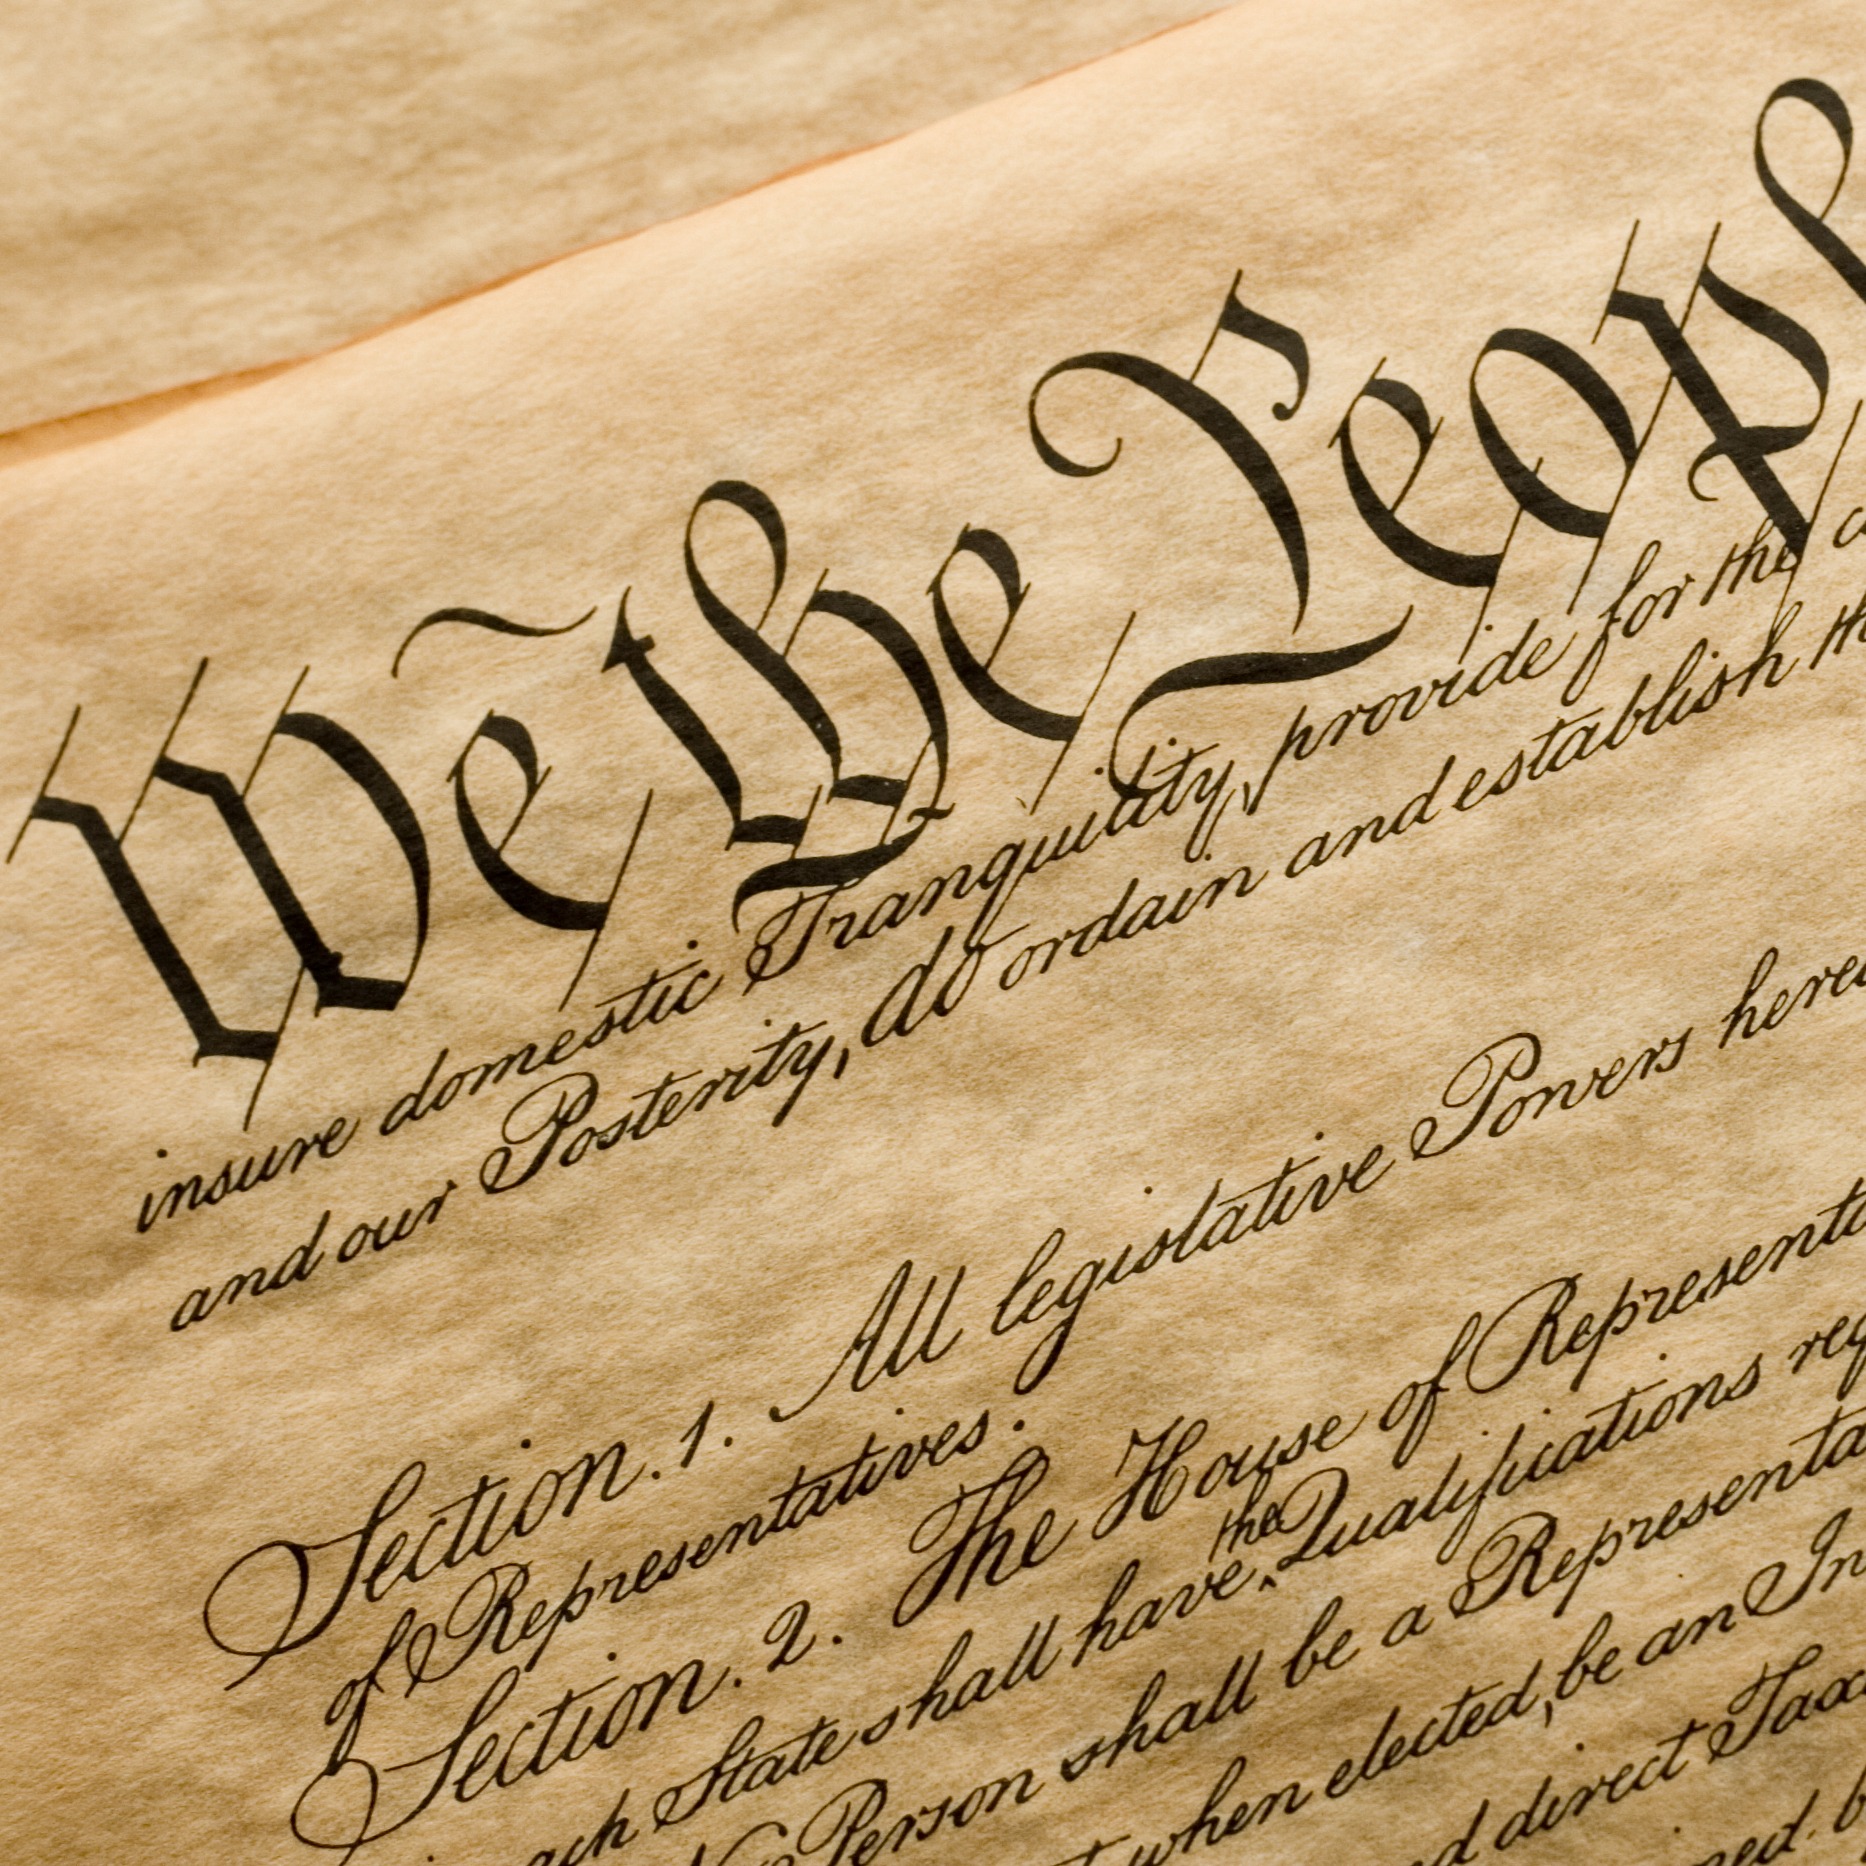 We the Peopl
insure domestic Tranquility, provide for the
and our Posterity, do ordain and establish
Section. 1. All legislative Powers
of Representatives.
Section. 2. The House of
the
State shall have Qualifications
Person shall be a
when elected, be an
direct